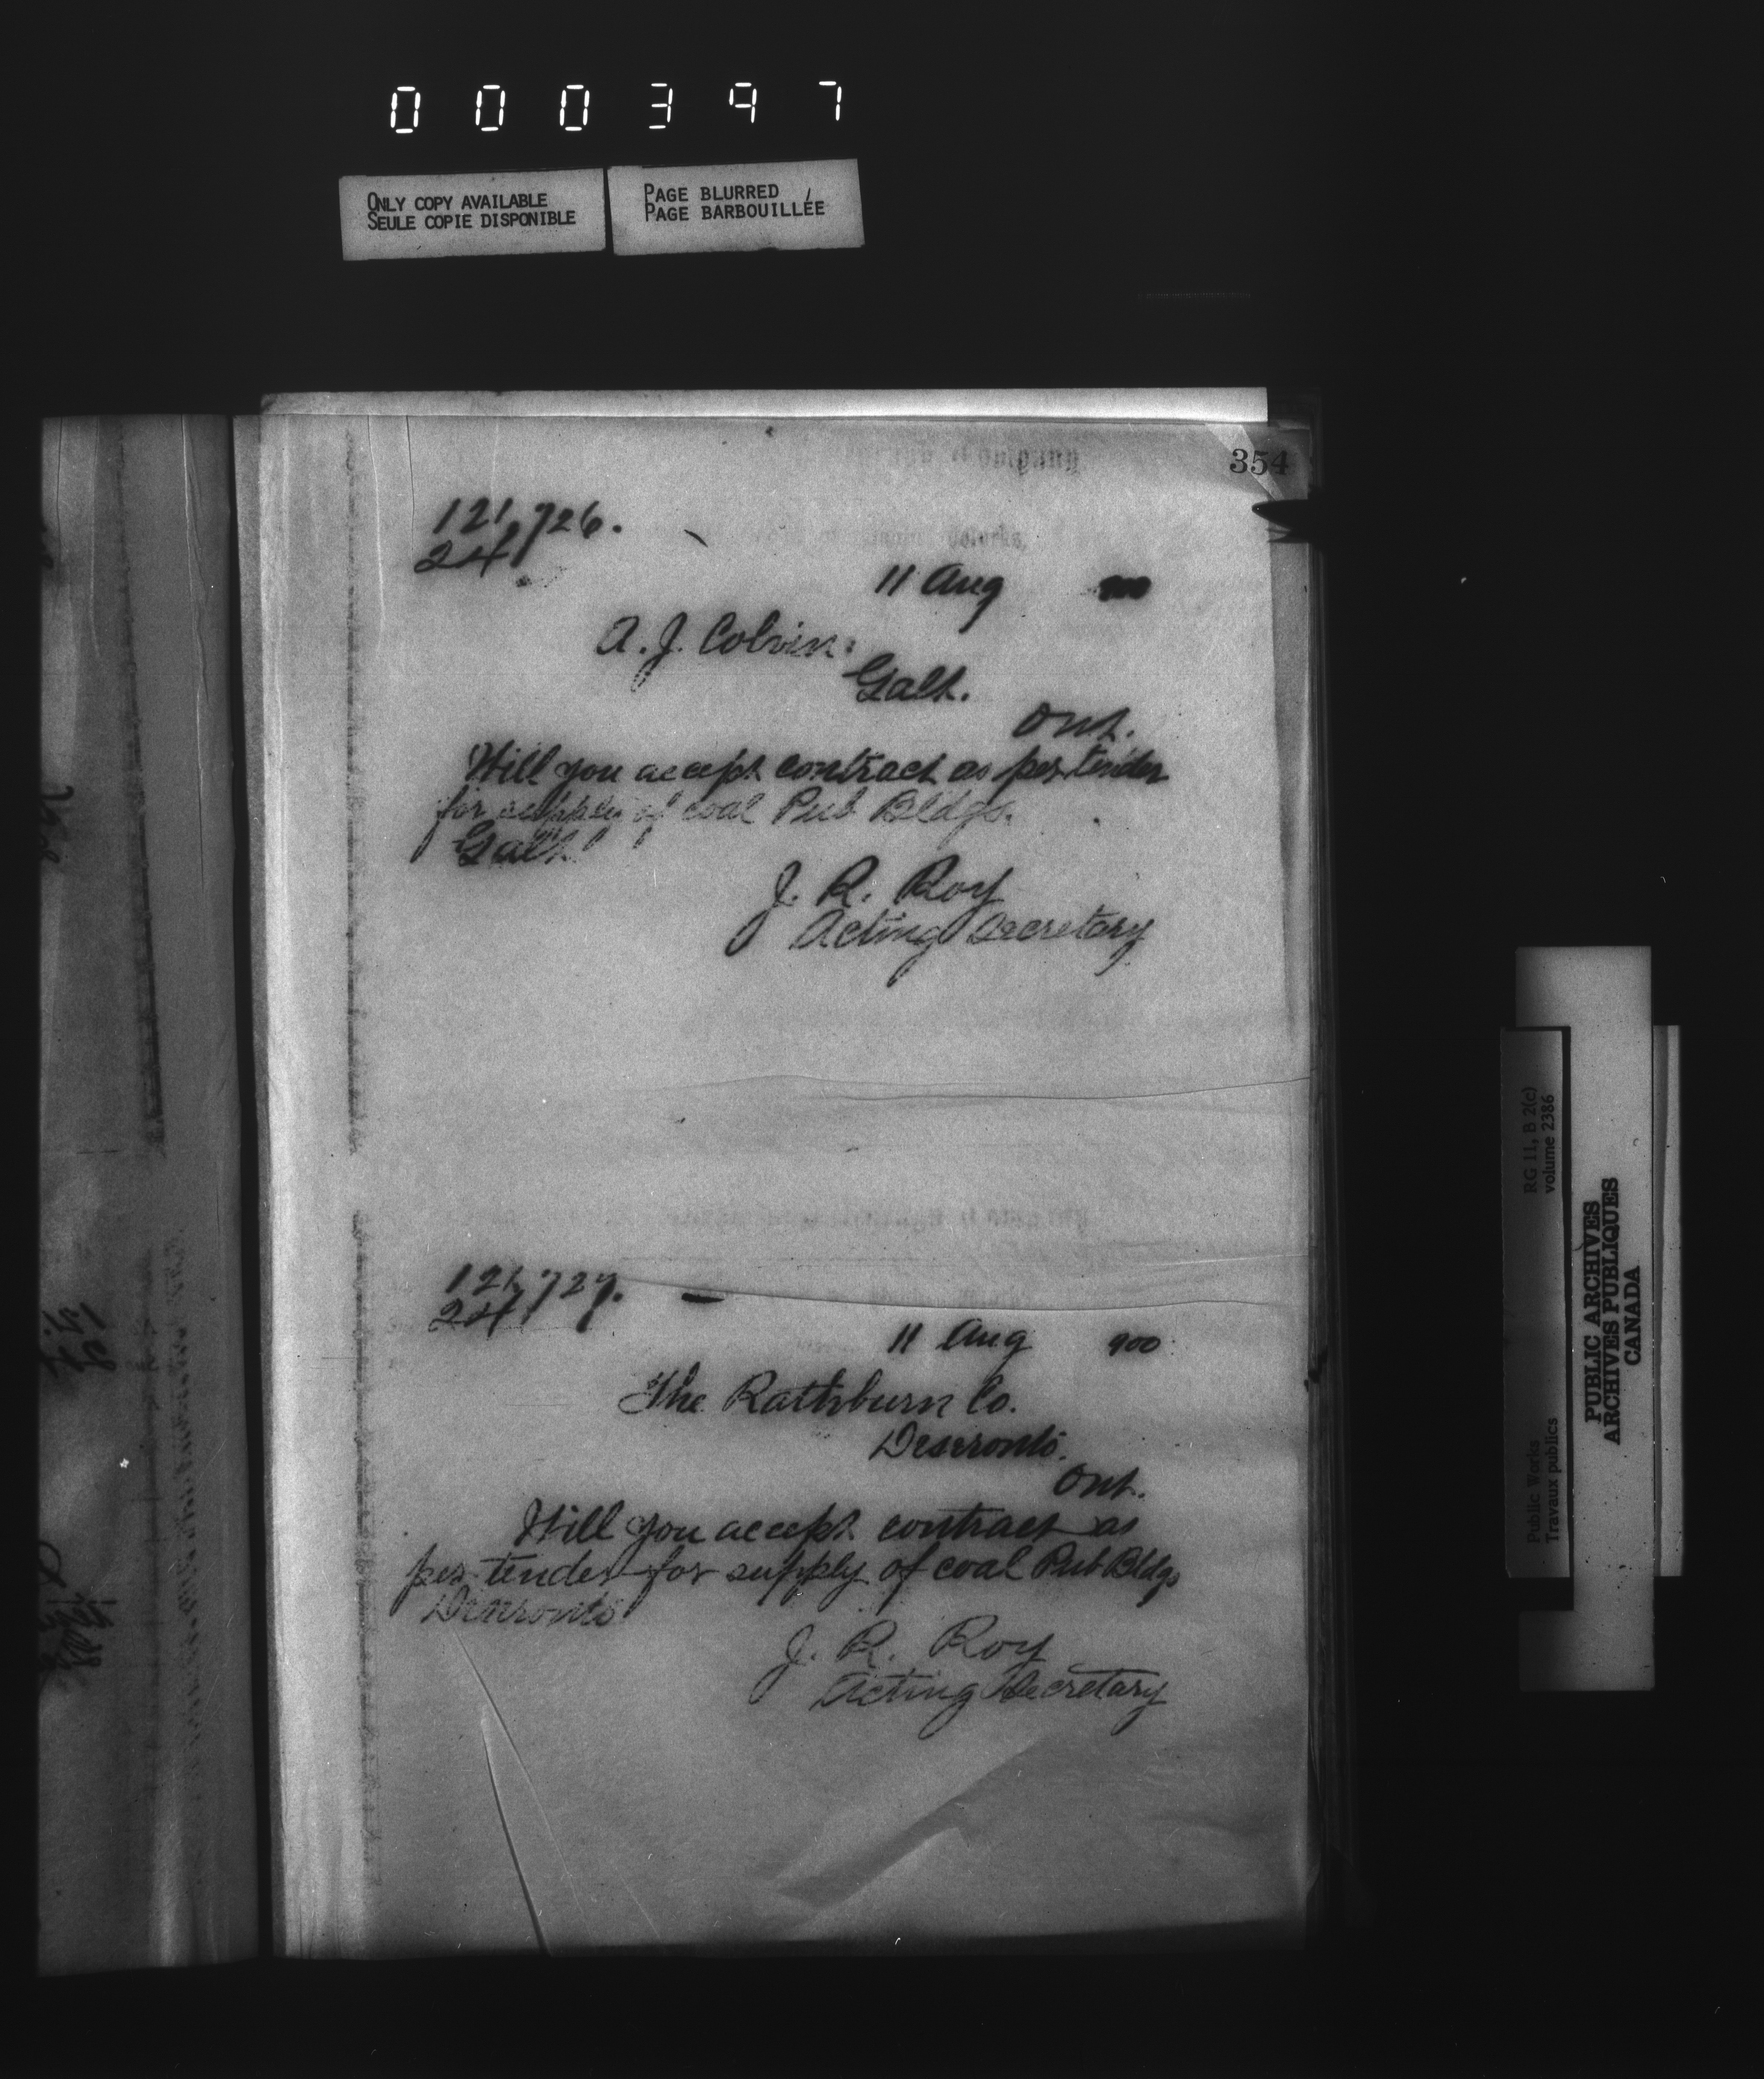 000397
ONLY COPY AVAILABLE
SEULE COPIE DISPONIBLE
PAGE BLURRED
PAGE BARBOUILLÉE
354
121,726.
24
11 Aug 900
A. J. Colvin.
Galt.
Ont.
Will you accept contract as per tender
for supply of coal Pub Bldgs.
Galt
J. R. Roy
Acting Secretary
121,727.
24
11 Aug 900
The Rathburn Co.
Deseronto.
Ont.
Will you accept contract as
per tender for supply of coal Pub Bldgs
Deseronto
J. R. Roy
Acting Secretary
Public Works
Travaux publics
RG 11, B 2(c)
volume 2386
PUBLIC ARCHIVES
ARCHIVES PUBLIQUES
CANADA